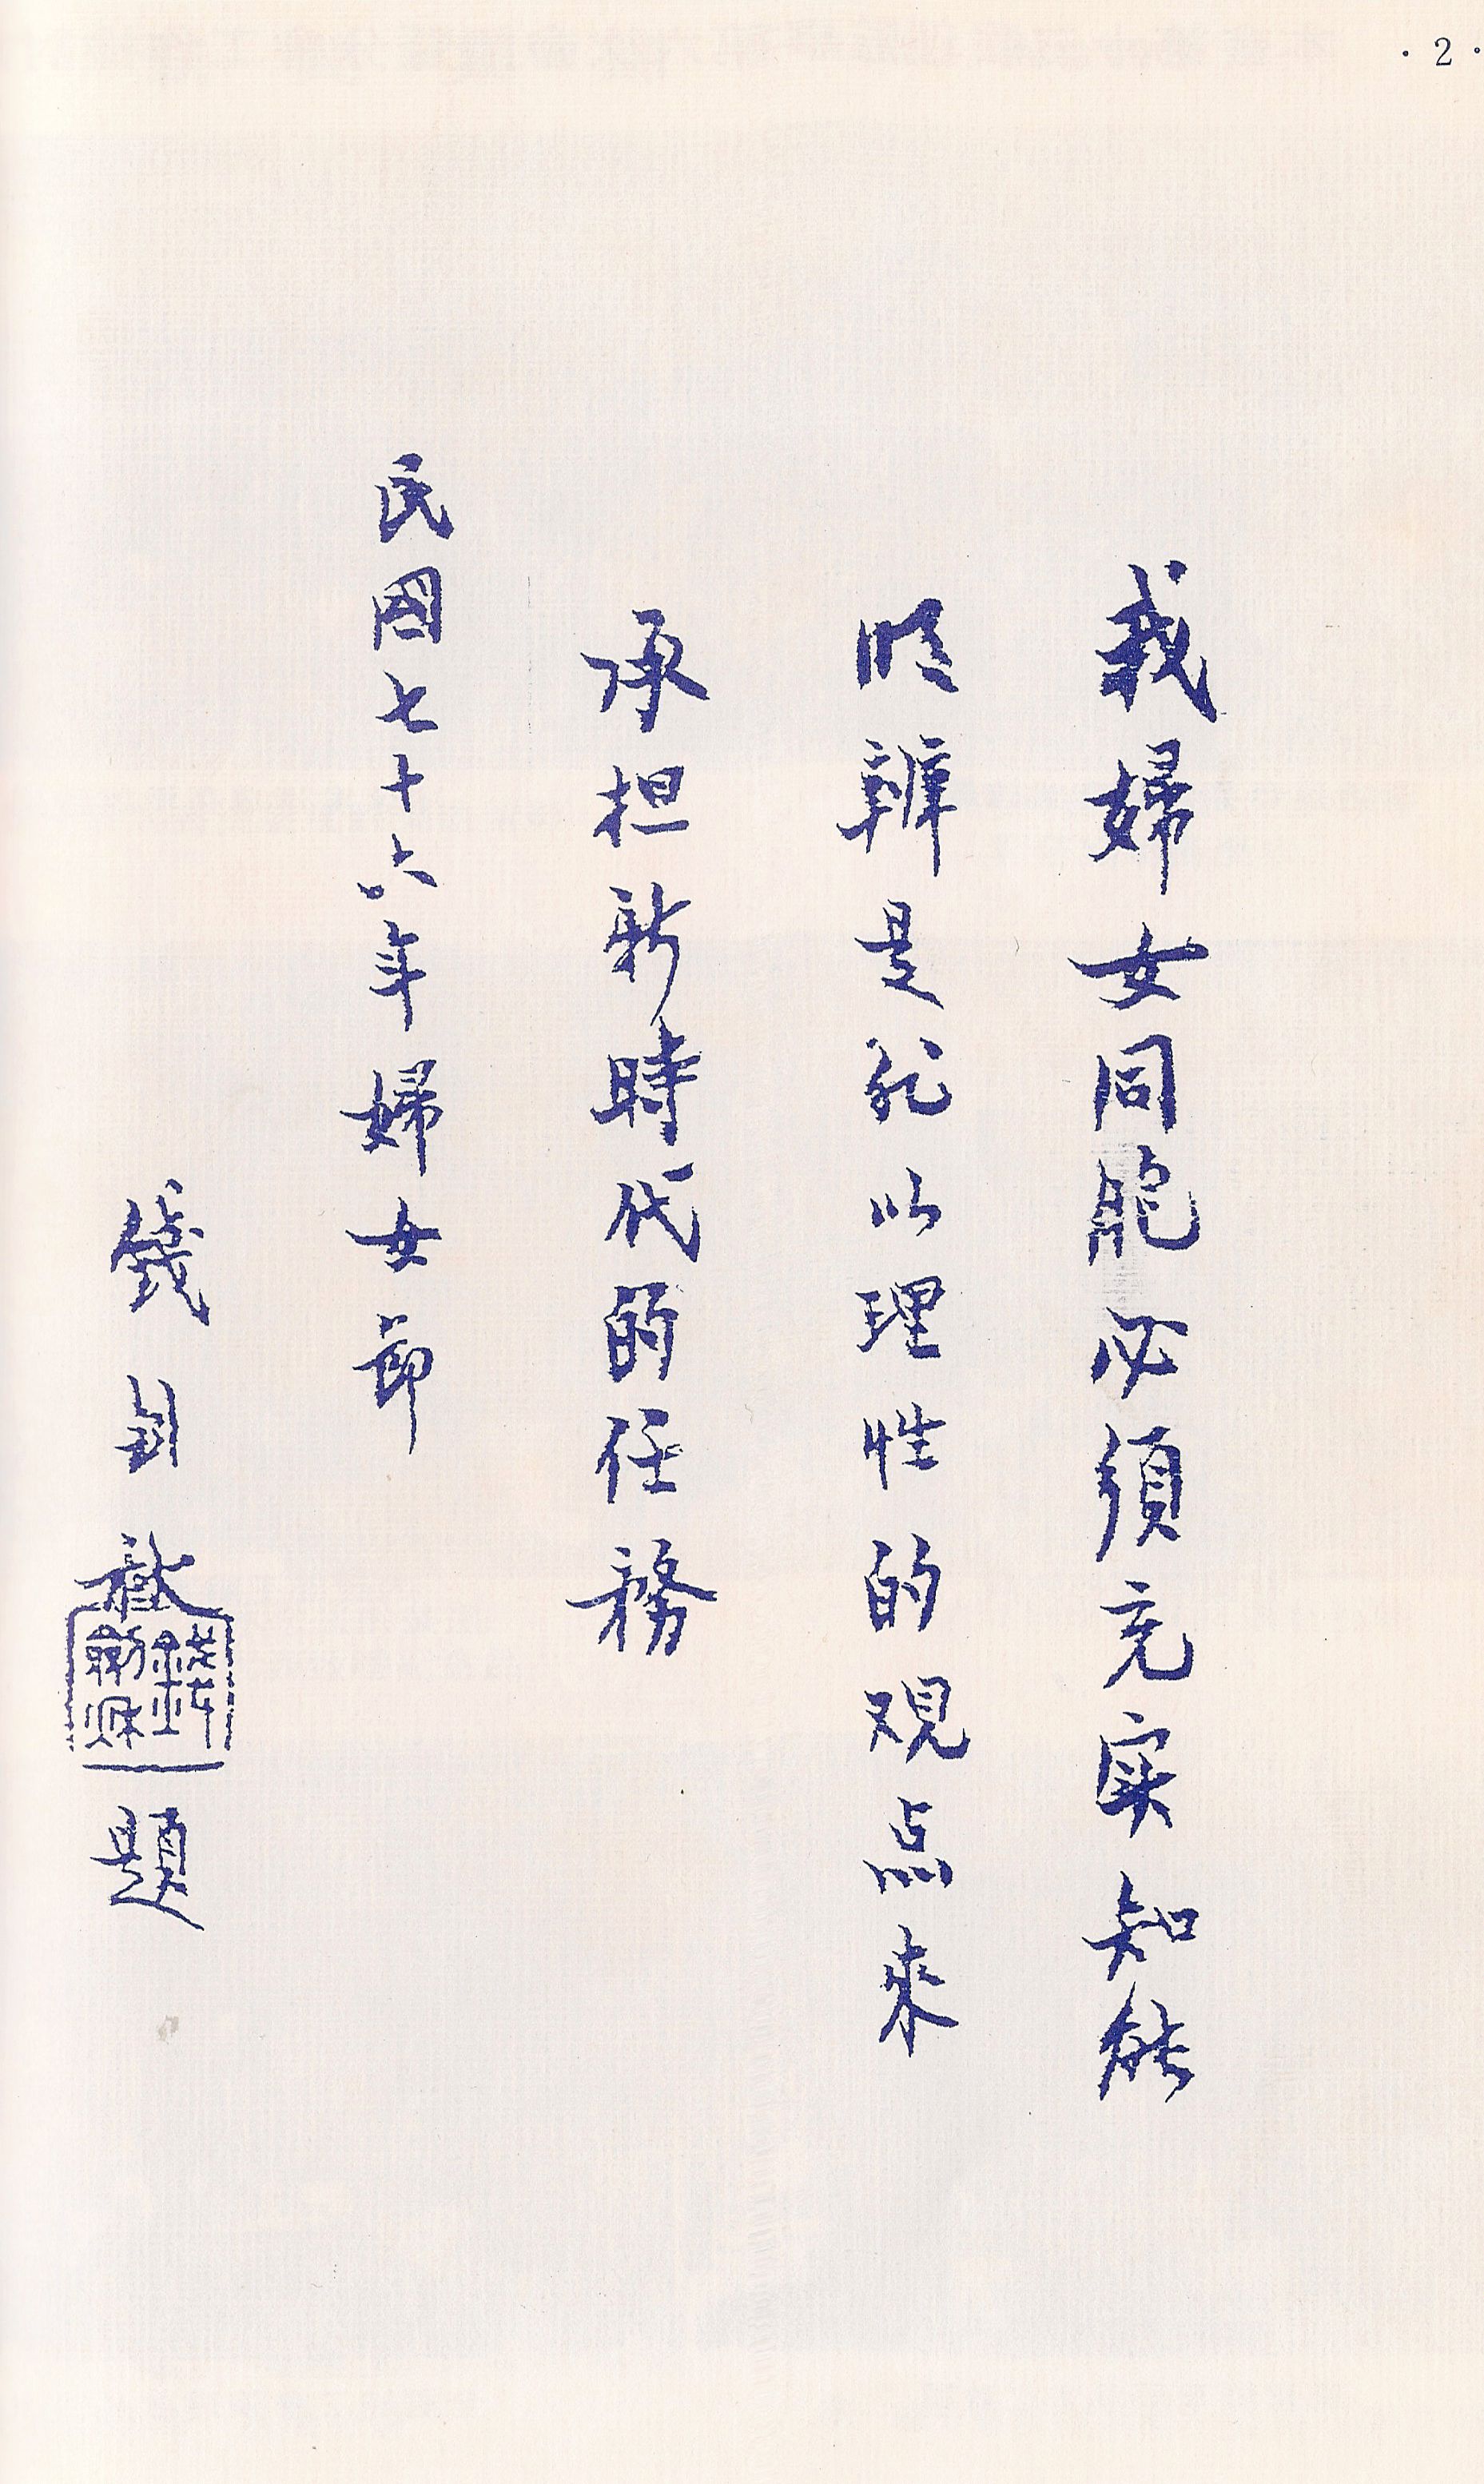 · 2 ·
我婦女同胞必須充实知能
明辨是非以理性的观点來
承担新時代的任務
民國七十六年婦女節
錢劍秋題
錢劍秋